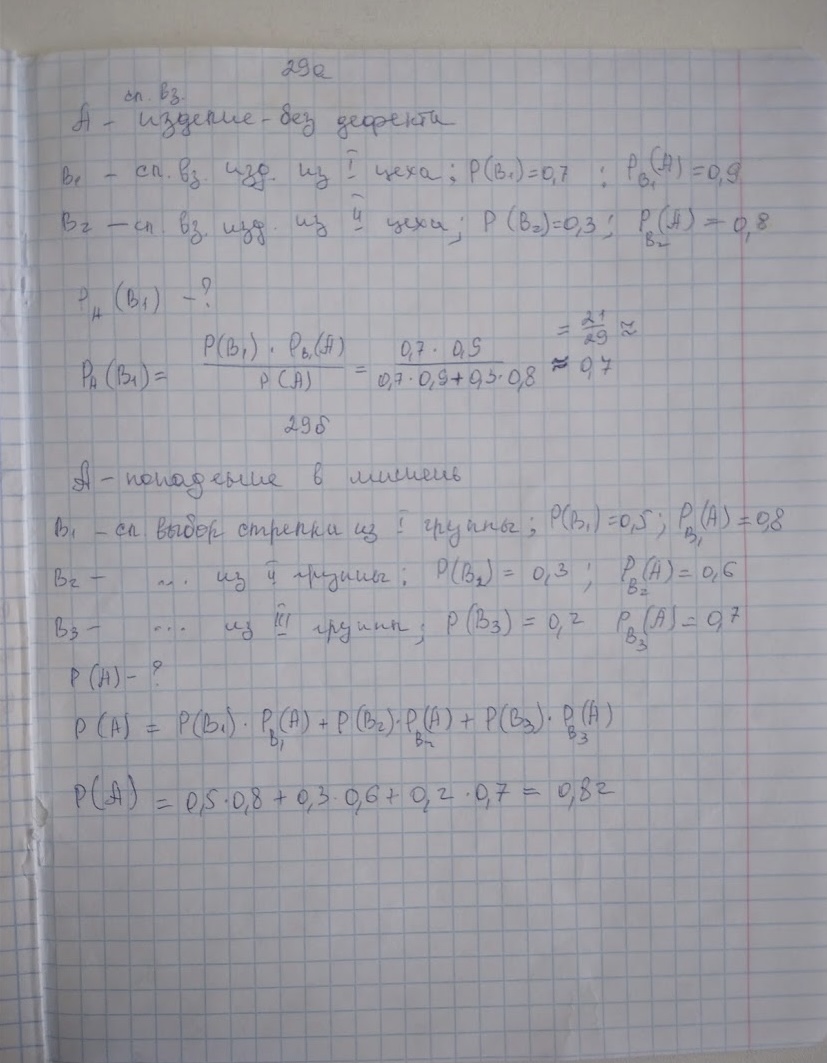 29а
сл. вз.
A – изделие – без дефекта
B₁ – сл. вз. изд. из I цеха; P(B₁)=0,7 ; P_B₁(A)=0,9
B₂ – сл. вз. изд. из II цеха; P(B₂)=0,3; P_B₂(A) = 0,8
P_A(B₁) – ?
P_A(B₁) = P(B₁) · P_B₁(A) / P(A) = 0,7 · 0,9 / 0,7·0,9+0,3·0,8 = 21/29 ≈ ≈ 0,7
29б
A – попадение в мишень
B₁ – сл. выбор стрелка из I группы; P(B₁)=0,5; P_B₁(A)=0,8
B₂ – ... из II группы; P(B₂) = 0,3 ; P_B₂(A)=0,6
B₃ – ... из III групп; P(B₃) = 0,2 P_B₃(A)=0,7
P(A) – ?
P(A) = P(B₁) · P_B₁(A) + P(B₂) · P_B₂(A) + P(B₃) · P_B₃(A)
P(A) = 0,5·0,8 + 0,3·0,6 + 0,2·0,7 = 0,82